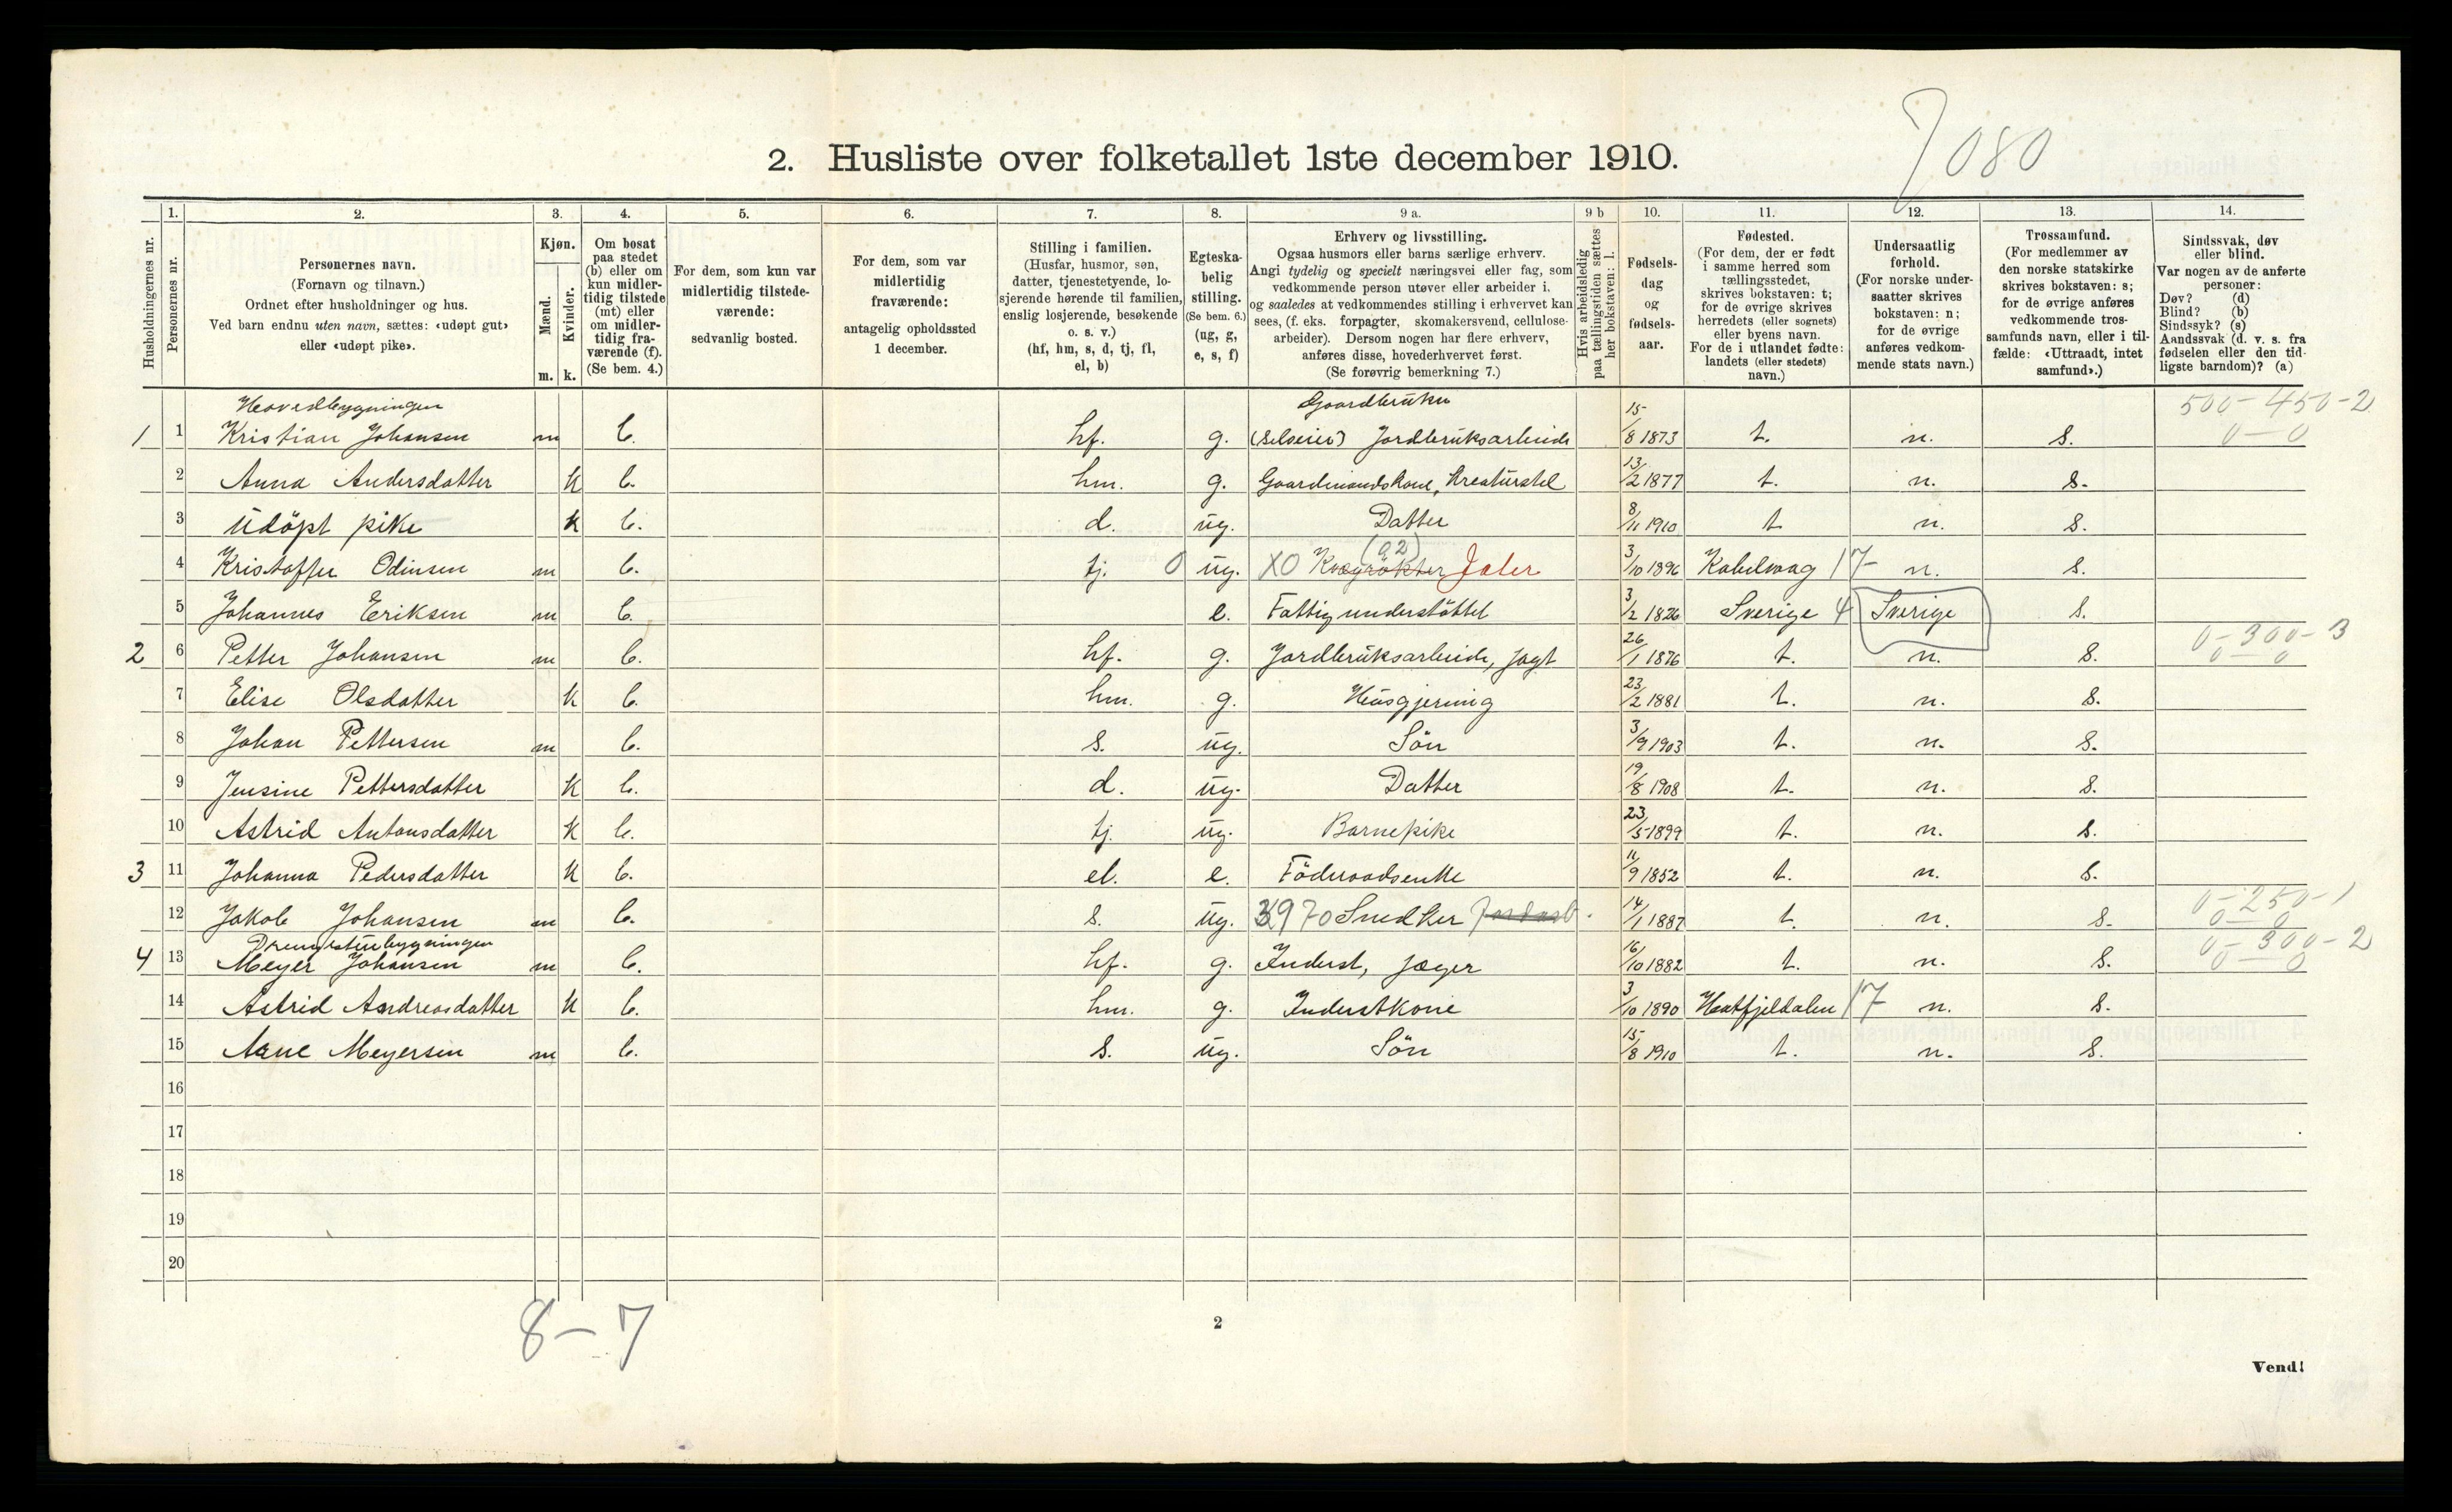 7080
2. Husliste over folketallet 1ste december 1910.
1. 2. 3. 4. 5. 6. 7. 8. 9 a. 9 b 10. 11. 12. 13. 14.
Husholdningernes nr.
Personernes nr.
Personernes navn.
(Fornavn og tilnavn.)
Ordnet efter husholdninger og hus.
Ved barn endnu uten navn, sættes: «udøpt gut»
eller «udøpt pike».
Kjøn.
Mænd.
Kvinder.
m. k.
Om bosat
paa stedet
(b) eller om
kun midler-
tidig tilstede
(mt) eller
om midler-
tidig fra-
værende (f).
(Se bem. 4.)
For dem, som kun var
midlertidig tilstede-
værende:
sedvanlig bosted.
For dem, som var
midlertidig
fraværende:
antagelig opholdssted
1 december.
Stilling i familien.
(Husfar, husmor, søn,
datter, tjenestetyende, lo-
sjerende hørende til familien,
enslig losjerende, besøkende
o. s. v.)
(hf, hm, s, d, tj, fl,
el, b)
Egteska-
belig
stilling.
(Se bem. 6.)
(ug, g,
e, s, f)
Erhverv og livsstilling.
Ogsaa husmors eller barns særlige erhverv.
Angi tydelig og specielt næringsvei eller fag, som
vedkommende person utøver eller arbeider i,
og saaledes at vedkommendes stilling i erhvervet kan
sees, (f. eks. forpagter, skomakersvend, cellulose-
arbeider). Dersom nogen har flere erhverv,
anføres disse, hovederhvervet først.
(Se forøvrig bemerkning 7.)
Hvis arbeidsledig
paa tællingstiden sættes
her bokstaven: l.
Fødsels-
dag
og
fødsels-
aar.
Fødested.
(For dem, der er født
i samme herred som
tællingsstedet,
skrives bokstaven: t;
for de øvrige skrives
herredets (eller sognets)
eller byens navn.
For de i utlandet fødte:
landets (eller stedets)
navn.)
Undersaatlig
forhold.
(For norske under-
saatter skrives
bokstaven: n;
for de øvrige
anføres vedkom-
mende stats navn.)
Trossamfund.
(For medlemmer av
den norske statskirke
skrives bokstaven: s;
for de øvrige anføres
vedkommende tros-
samfunds navn, eller i til-
fælde: «Uttraadt, intet
samfund».)
Sindssvak, døv
eller blind.
Var nogen av de anførte
personer:
Døv? (d)
Blind? (b)
Sindssyk? (s)
Aandssvak (d. v. s. fra
fødselen eller den tid-
ligste barndom)? (a)
Hovedbygningen Gaardbruker 500-450-2
1 1 Kristian Johansen m b. hf. g. (Selveier) Jordbruksarbeide 15/8 1873 t. n. s. 0-0
2 Anna Andersdatter k b. hm. g. Gaardmandskone, Kreaturstel 13/2 1877 t. n. s.
3 Udöpt pike k b. d. ug. Datter 8/11 1910 t n. s.
(a2)
4 Kristoffer Odinsen m b. tj. 0 ug. XO Kvægrökter Jater 3/10 1896 Kabelvaag 17 n. s.
5 Johannes Eriksen m b. e. Fattigunderstöttet 3/2 1826 Sverige 4 Sverige s.
0-300-3
2 6 Petter Johansen m b. hf. g. Jordbruksarbeide, jagt 26/1 1876 t. n. s. 0-0
7 Elise Olsdatter k b. hm. g. Husgjerning 23/2 1881 t. n. s.
8 Johan Pettersen m b. s. ug. Sön 3/9 1903 t. n. s.
9 Jensine Pettersdatter k b. d. ug. Datter 19/8 1908 t. n. s.
10 Astrid Antonsdatter k b. tj. ug. Barnepike 23/5 1899 t. n. s.
3 11 Johanna Pedersdatter k b. el. e. Föderaadsenke 11/9 1852 t. n. s.
0-250-1
12 Jakob Johansen m b. s. ug. 3970 Snedker Jordarb. 14/1 1887 t. n. s. 0-0
Drengestubygningen 0-300-2
4 13 Meyer Johansen m b. hf. g. Inderst, jæger 16/10 1882 t. n. s. 0-0
14 Astrid Andreasdatter k b. hm. g. Inderstkone 3/10 1890 Hatfjeldalen 17 n. s.
15 Arne Meyersen m b. s. ug. Sön 15/8 1910 t. n. s.
16
17
18
19
20
8-7
2
Vend!